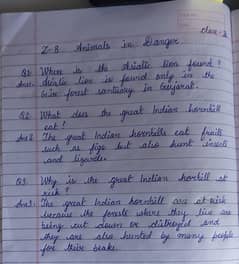 Class - 3
L-8 Animals in Danger
Q1. Where is the Asiatic lion found?
Ans1. Asiatic lion is found only in the
Gir forest santuary in Gujarat.
Q2. What does the great Indian hornbill
eat?
Ans2. The great Indian hornbills eat fruits
such as figs but also hunt insects
and lizards.
Q3. Why is the great Indian horbill at
risk?
Ans3. The great Indian horbill are at risk
because the forests where they live are
being cut down or distroyed and
they are also hunted by many people
for their beaks.